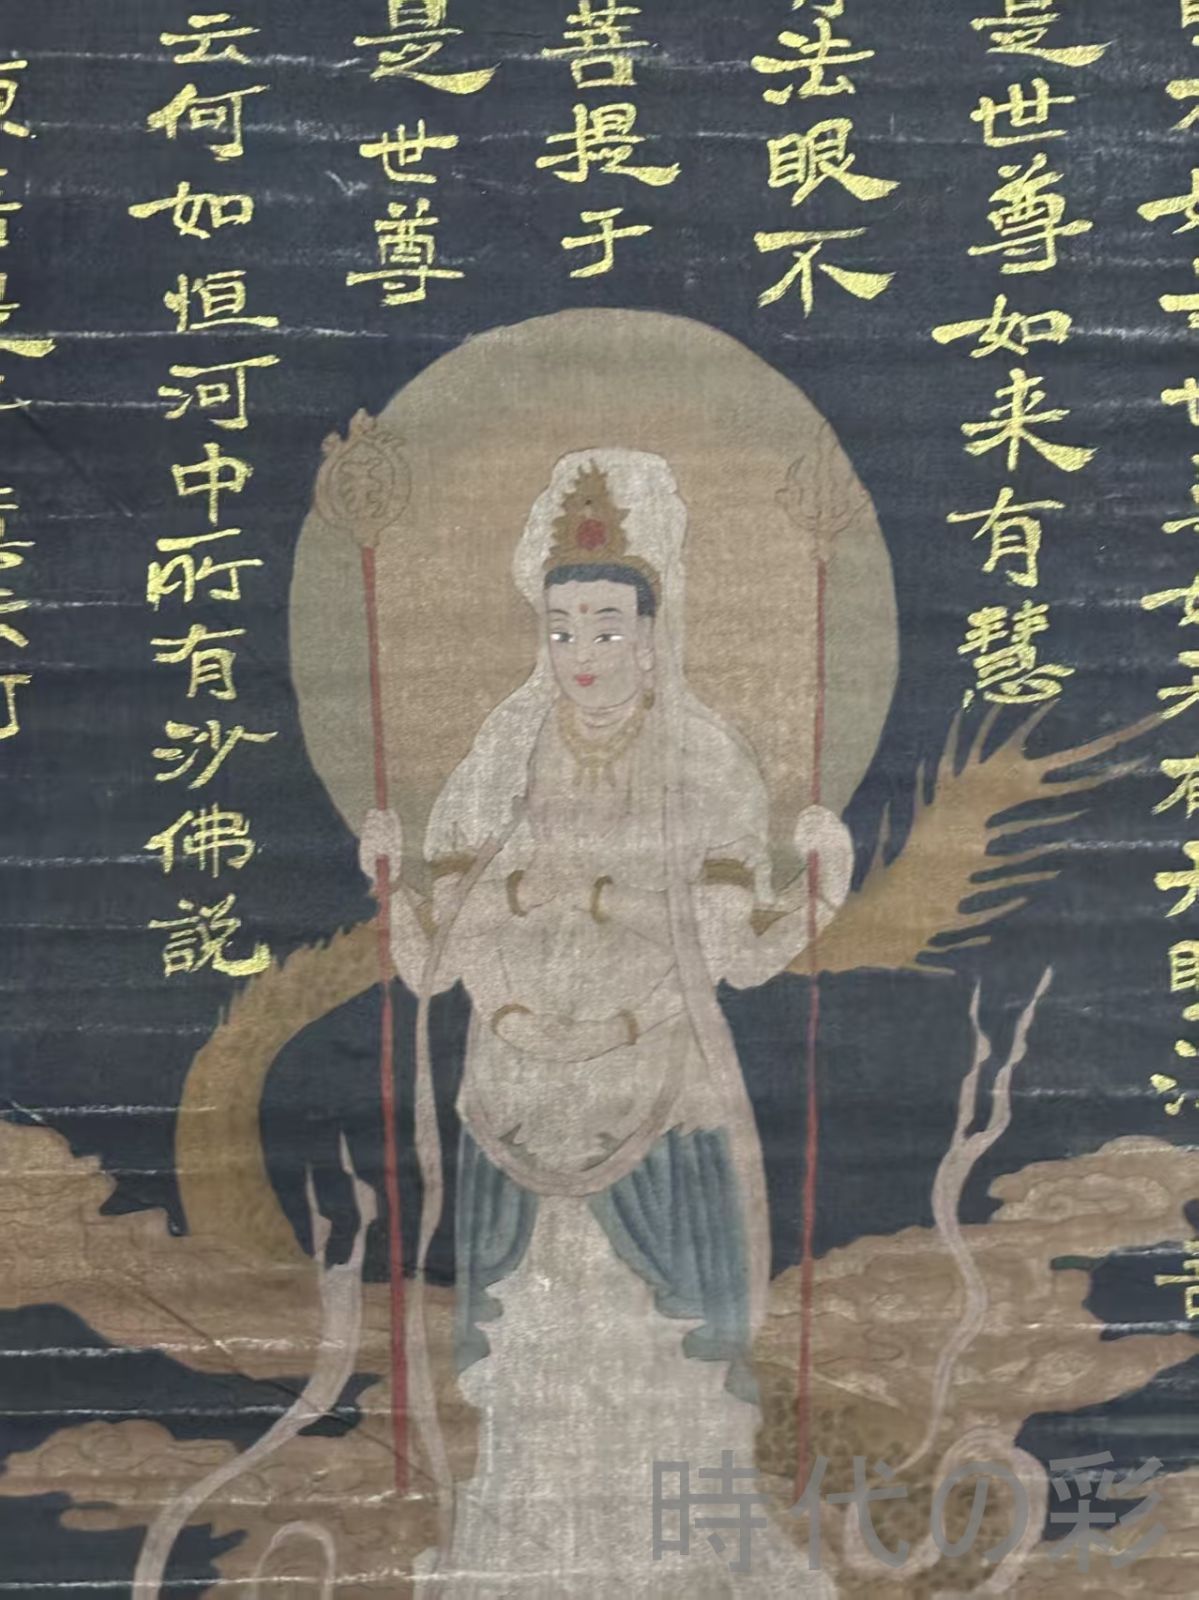 是世尊如来有慧
有法眼不
菩提于
是世尊
云何如恒河中所有沙佛説
時代の彩